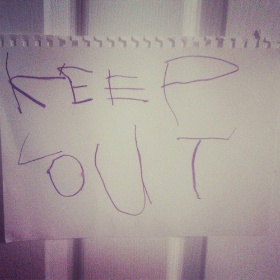 KEEP
OUT